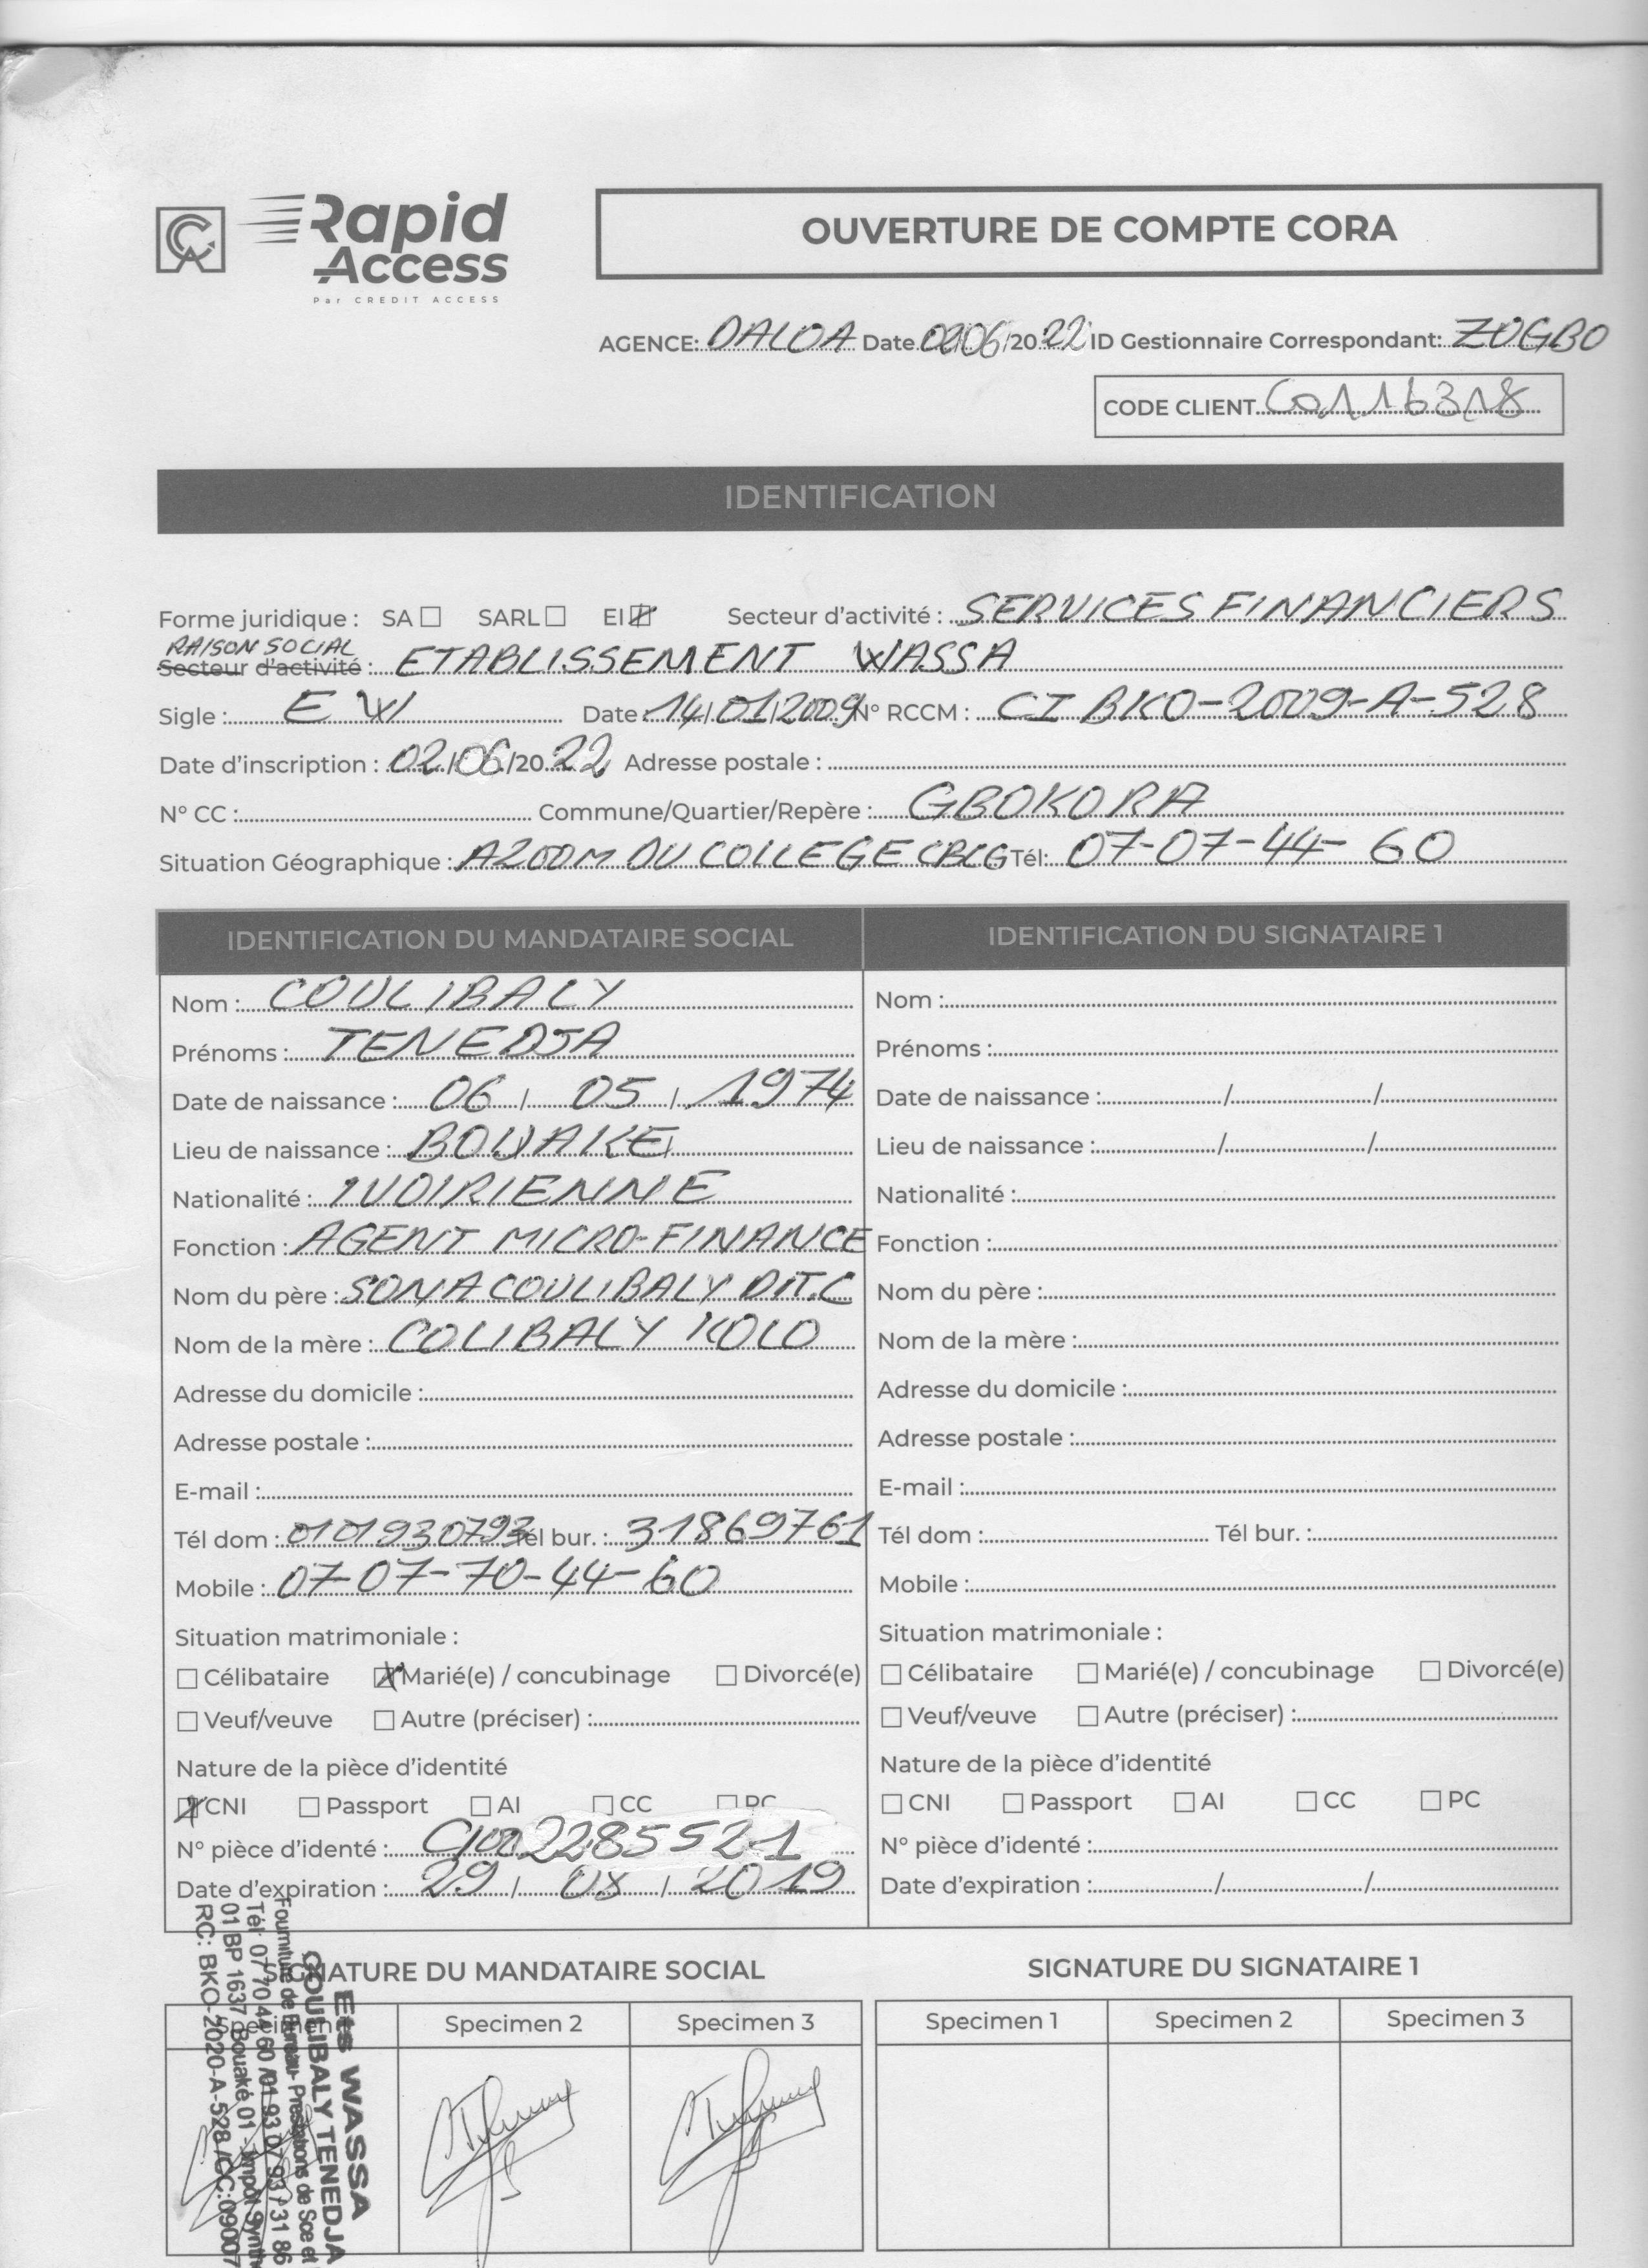 Rapid Access
Par CREDIT ACCESS
OUVERTURE DE COMPTE CORA
AGENCE: DALOA Date 02/06/2022 ID Gestionnaire Correspondant: ZOGBO
CODE CLIENT C0116318
IDENTIFICATION
Forme juridique : SA SARL EI Secteur d'activité : SERVICES FINANCIERS
RAISON SOCIAL
Secteur d'activité : ETABLISSEMENT WASSA
Sigle : EW Date : 14/01/2009 N° RCCM : CI BKO-2009-A-528
Date d'inscription : 02/06/2022 Adresse postale :
N° CC : Commune/Quartier/Repère : GBOKORA
Situation Géographique : A 200M DU COLLEGE CBCG Tél: 07-07-44-60
IDENTIFICATION DU MANDATAIRE SOCIAL
Nom : COULIBALY
Prénoms : TENEDJA
Date de naissance : 06 / 05 / 1974
Lieu de naissance : BOUAKE
Nationalité : IVOIRIENNE
Fonction : AGENT MICRO-FINANCE
Nom du père : SONA COULIBALY DIT.C
Nom de la mère : COLIBALY KOLO
Adresse du domicile :
Adresse postale :
E-mail :
Tél dom : 0101930793 Tél bur. : 31869761
Mobile : 07-07-70-44-60
Situation matrimoniale :
Célibataire Marié(e) / concubinage Divorcé(e)
Veuf/veuve Autre (préciser) :
Nature de la pièce d'identité
CNI Passport AI CC PC
N° pièce d'idente : 2285521
Date d'expiration : 29 / 08 / 2019
IDENTIFICATION DU SIGNATAIRE 1
Nom :
Prénoms :
Date de naissance : / /
Lieu de naissance : / /
Nationalité :
Fonction :
Nom du père :
Nom de la mère :
Adresse du domicile :
Adresse postale :
E-mail :
Tél dom : Tél bur. :
Mobile :
Situation matrimoniale :
Célibataire Marié(e) / concubinage Divorcé(e)
Veuf/veuve Autre (préciser) :
Nature de la pièce d'identité
CNI Passport AI CC PC
N° pièce d'idente :
Date d'expiration : / /
SIGNATURE DU MANDATAIRE SOCIAL
Specimen 1 Specimen 2 Specimen 3
SIGNATURE DU SIGNATAIRE 1
Specimen 1 Specimen 2 Specimen 3
Ets WASSA
COULIBALY TENEDJA
Fourniture de Bureau- Prestations de Sce et
Tél: 07 70 44 60 /01 93 07 93 / 31 86
01 BP 1637 Bouaké 01 - Impôt Synth
RC: BKO-2020-A-528 /CC: 09007